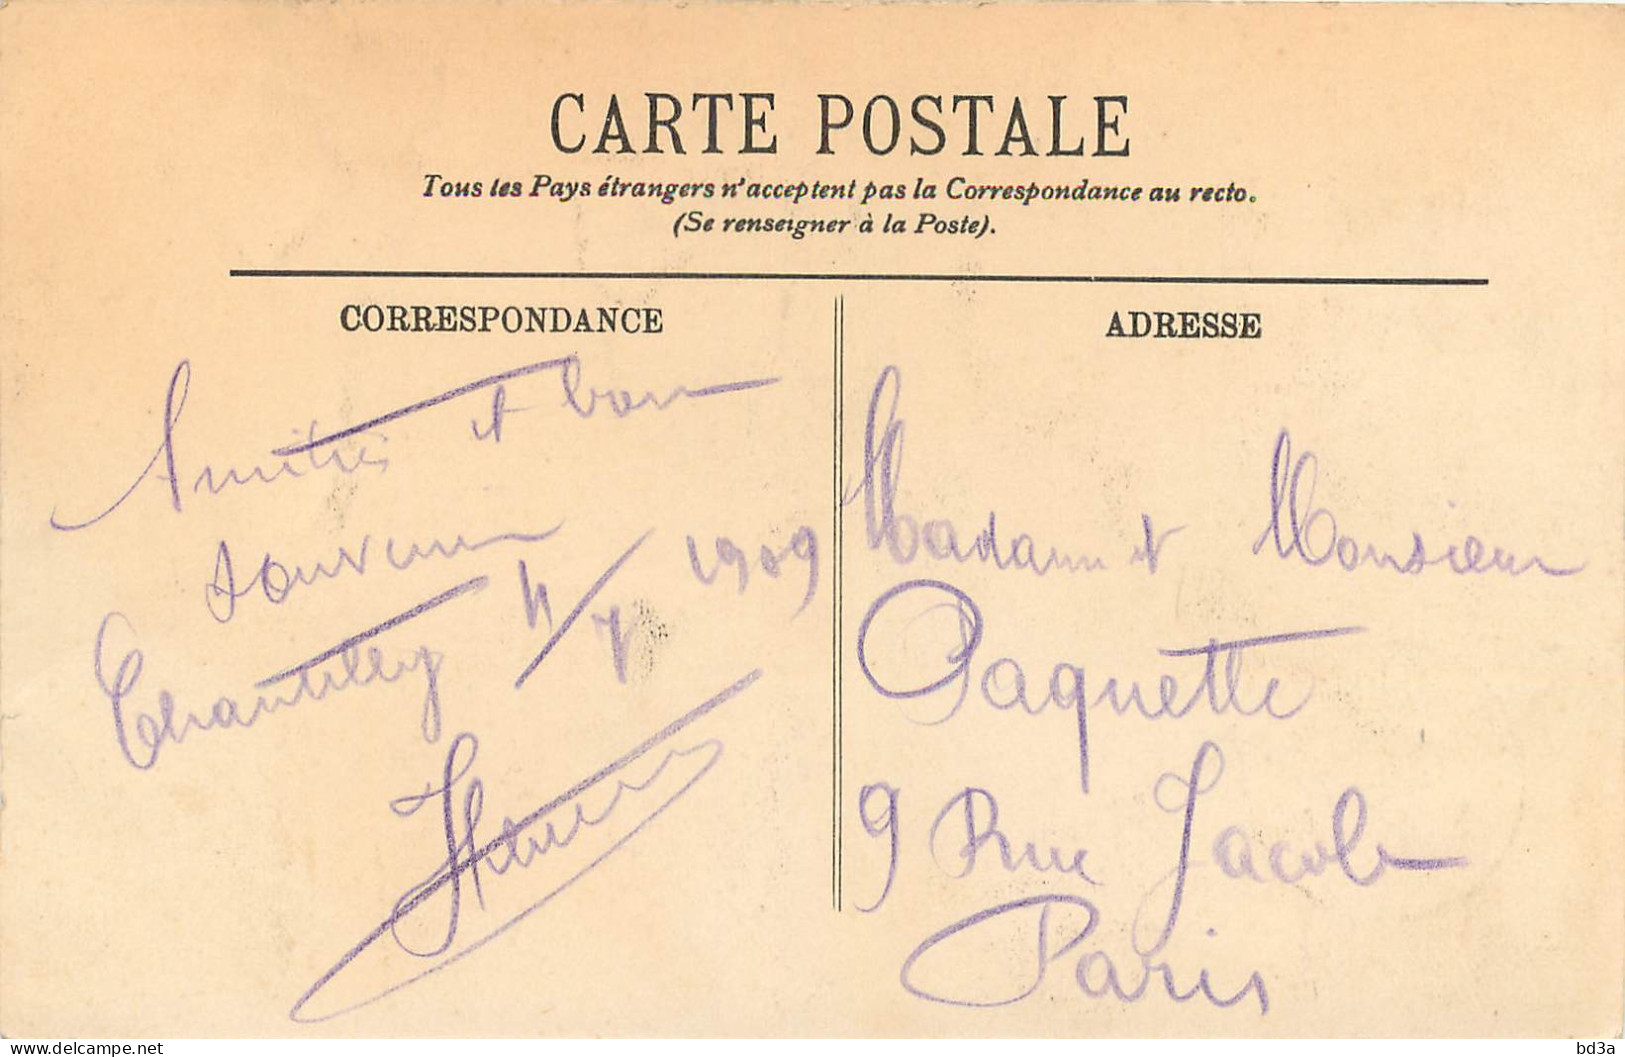 CARTE POSTALE
Tous les Pays étrangers n'acceptent pas la Correspondance au recto.
(Se renseigner à la Poste).
CORRESPONDANCE
Amitiés et bon
souvenir
Chantilly 4/7 1909
ADRESSE
Madame et Monsieur
Paquette
9 Rue Jacob
Paris
bd3a